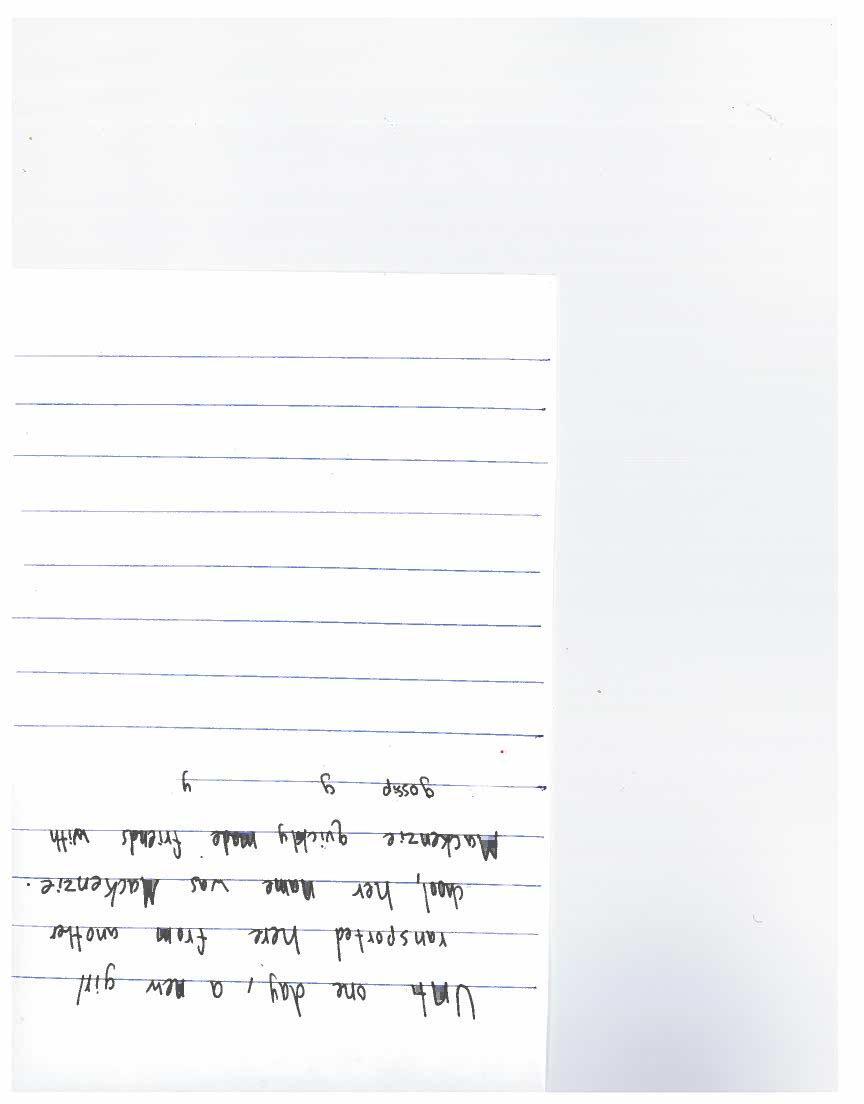 Unti one day, a new girl
ransported here from another
chool, her name was Mackenzie.
Mackenzie quickly made friends with
gossip g y